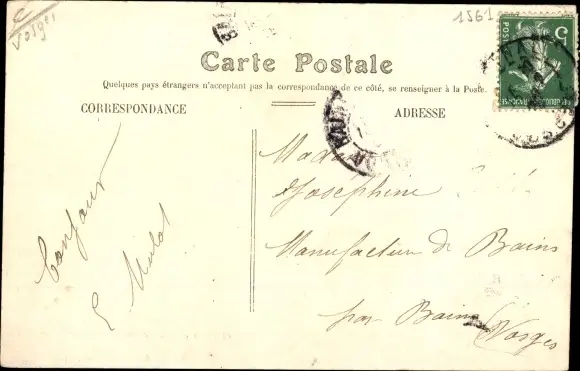 Vosges
1561
Carte Postale
Quelques pays étrangers n'acceptant pas la correspondance de ce côté, se renseigner à la Poste.
CORRESPONDANCE
ADRESSE
Joséphine
Manufacture de Bains
par Bains
Vosges
bonjour
5
POSTES